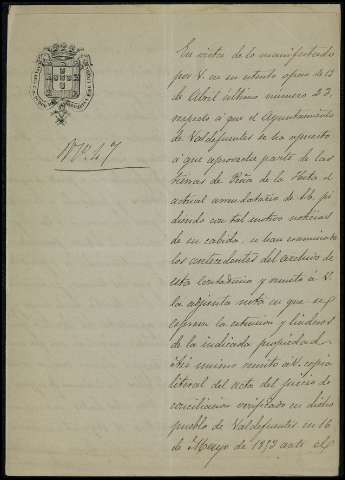 Nº. 47
En vista de lo manifestado
por V. en su atento oficio de 13
de Abril último numero 23,
respecto a que el Ayuntamiento
de Valdefuentes se ha opuesto
a que aproveche parte de las
tierras de Peña de la Hita el
actual arrendatario de pi
diendo con tal motivo noticias
de su cabida, se han examinado
los antecedentes del archivo de
esta contaduria y remito á V.
la adjunta nota en que se
espresa la estension y linderos
de la indicada propiedad.
Asi mismo remito á V. copia
literal del acta del juicio de
conciliacion verificado en dicho
pueblo de Valdefuentes en 16
de Mayo de 1853 ante el